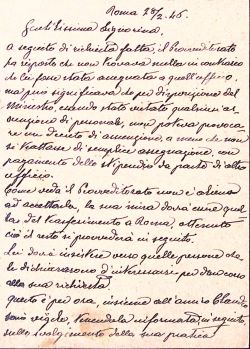 Roma 28/2.46.
Gentilissima Signorina,
a seguito di richiesta fatta, il Provveditorato
ha risposto che non trovava nulla in contrario
che Lei fosse stata assegnata a quell'ufficio,
ma può significava che per disposizione del
Ministero essendo stato vietato qualsiasi as-
sunzione di personale, non poteva provoca-
re un decreto di assunzione, a meno che non
si trattasse di semplice assegnazione, con
pagamento dello stipendio da parte di altro
ufficio.
Come vede il Provveditorato non è alieno
ad accettarla, la sua mira dovrà essere quel-
la del trasferimento a Roma, ottenuto
ciò il resto si provvederà in seguito.
Lei dovrà insistere verso quelle persone che
le dichiararono d'interessarsi per dar corso
alla sua richiesta.
Questo è per ora, insieme all'amico Claudio
sarò vigile, tenendola informata in seguito
sullo svolgimento della sua pratica.